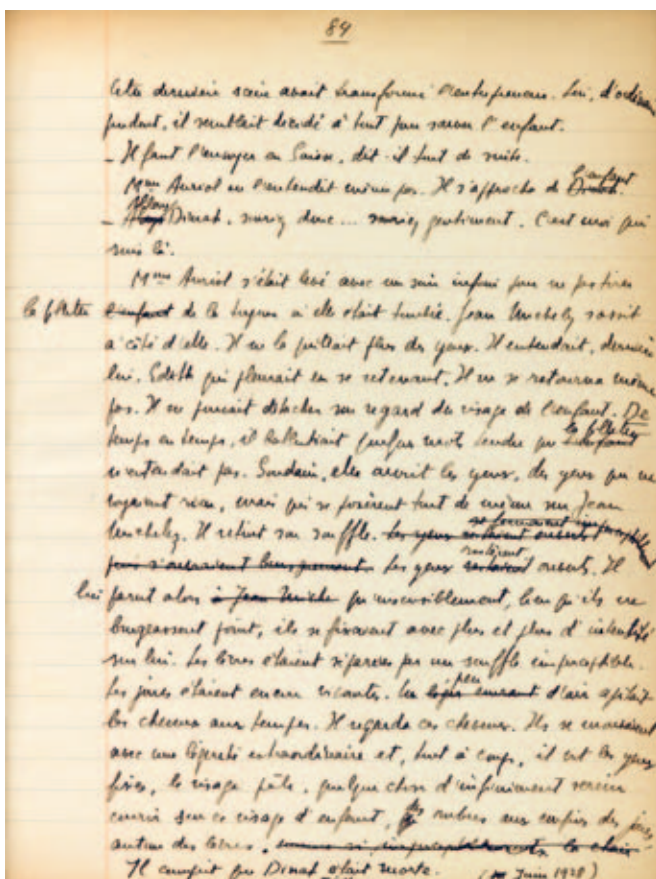 84
Cette dernière scène avait transformé l'entrepreneur. Lui, d'ordinaire
prudent, il semblait décidé à tout pour sauver l'enfant.
_ Il faut l'envoyer en Suisse, dit-il tout de suite.
Mme Auriol ne l'entendit même pas. Il s'approcha de Dinah. l'enfant
_ Allons Dinah, souriez donc... souriez gentiment. C'est moi qui
suis là.
Mme Auriol s'était levé avec un soin infini pour ne pas tirer
la fillette l'enfant de la torpeur où elle était tombée. Jean Michelez s'assit
à côté d'elle. Il ne la quittait plus des yeux. Il entendait, derrière
lui, Edith qui pleurait en se retenant. Il ne se retourna même
pas. Il ne pouvait détacher son regard du visage de l'enfant. De
temps en temps, il balbutiait quelques mots tendres que l'enfant la fillette
n'entendait pas. Soudain, elle ouvrit les yeux, des yeux qui ne
voyaient rien, mais qui se posèrent tout de même sur Jean
Michelez. Il retint son souffle. Les yeux restaient ouverts
puis s'ouvraient Les yeux restaient restèrent ouverts. Il
lui parut alors à Jean Miche qu'insensiblement, bien qu'ils ne
bougeassent point, ils se fixaient avec plus et plus d'intensité
sur lui. Les lèvres étaient séparées par un souffle imperceptible.
Les joues étaient encore vivantes. Un léger courant peu d'air agitait
les cheveux aux tempes. Il regarda ces cheveux. Ils se mouvaient
avec une légèreté extraordinaire et, tout à coup, il vit les yeux
fixes, le visage pâle, quelque chose d'infiniment serein
courir sur ce visage d'enfant, des ombres aux confins des joues
autour des lèvres, comme si, imperceptiblement, la chair
Il comprit que Dinah était morte. (Juin 1928)